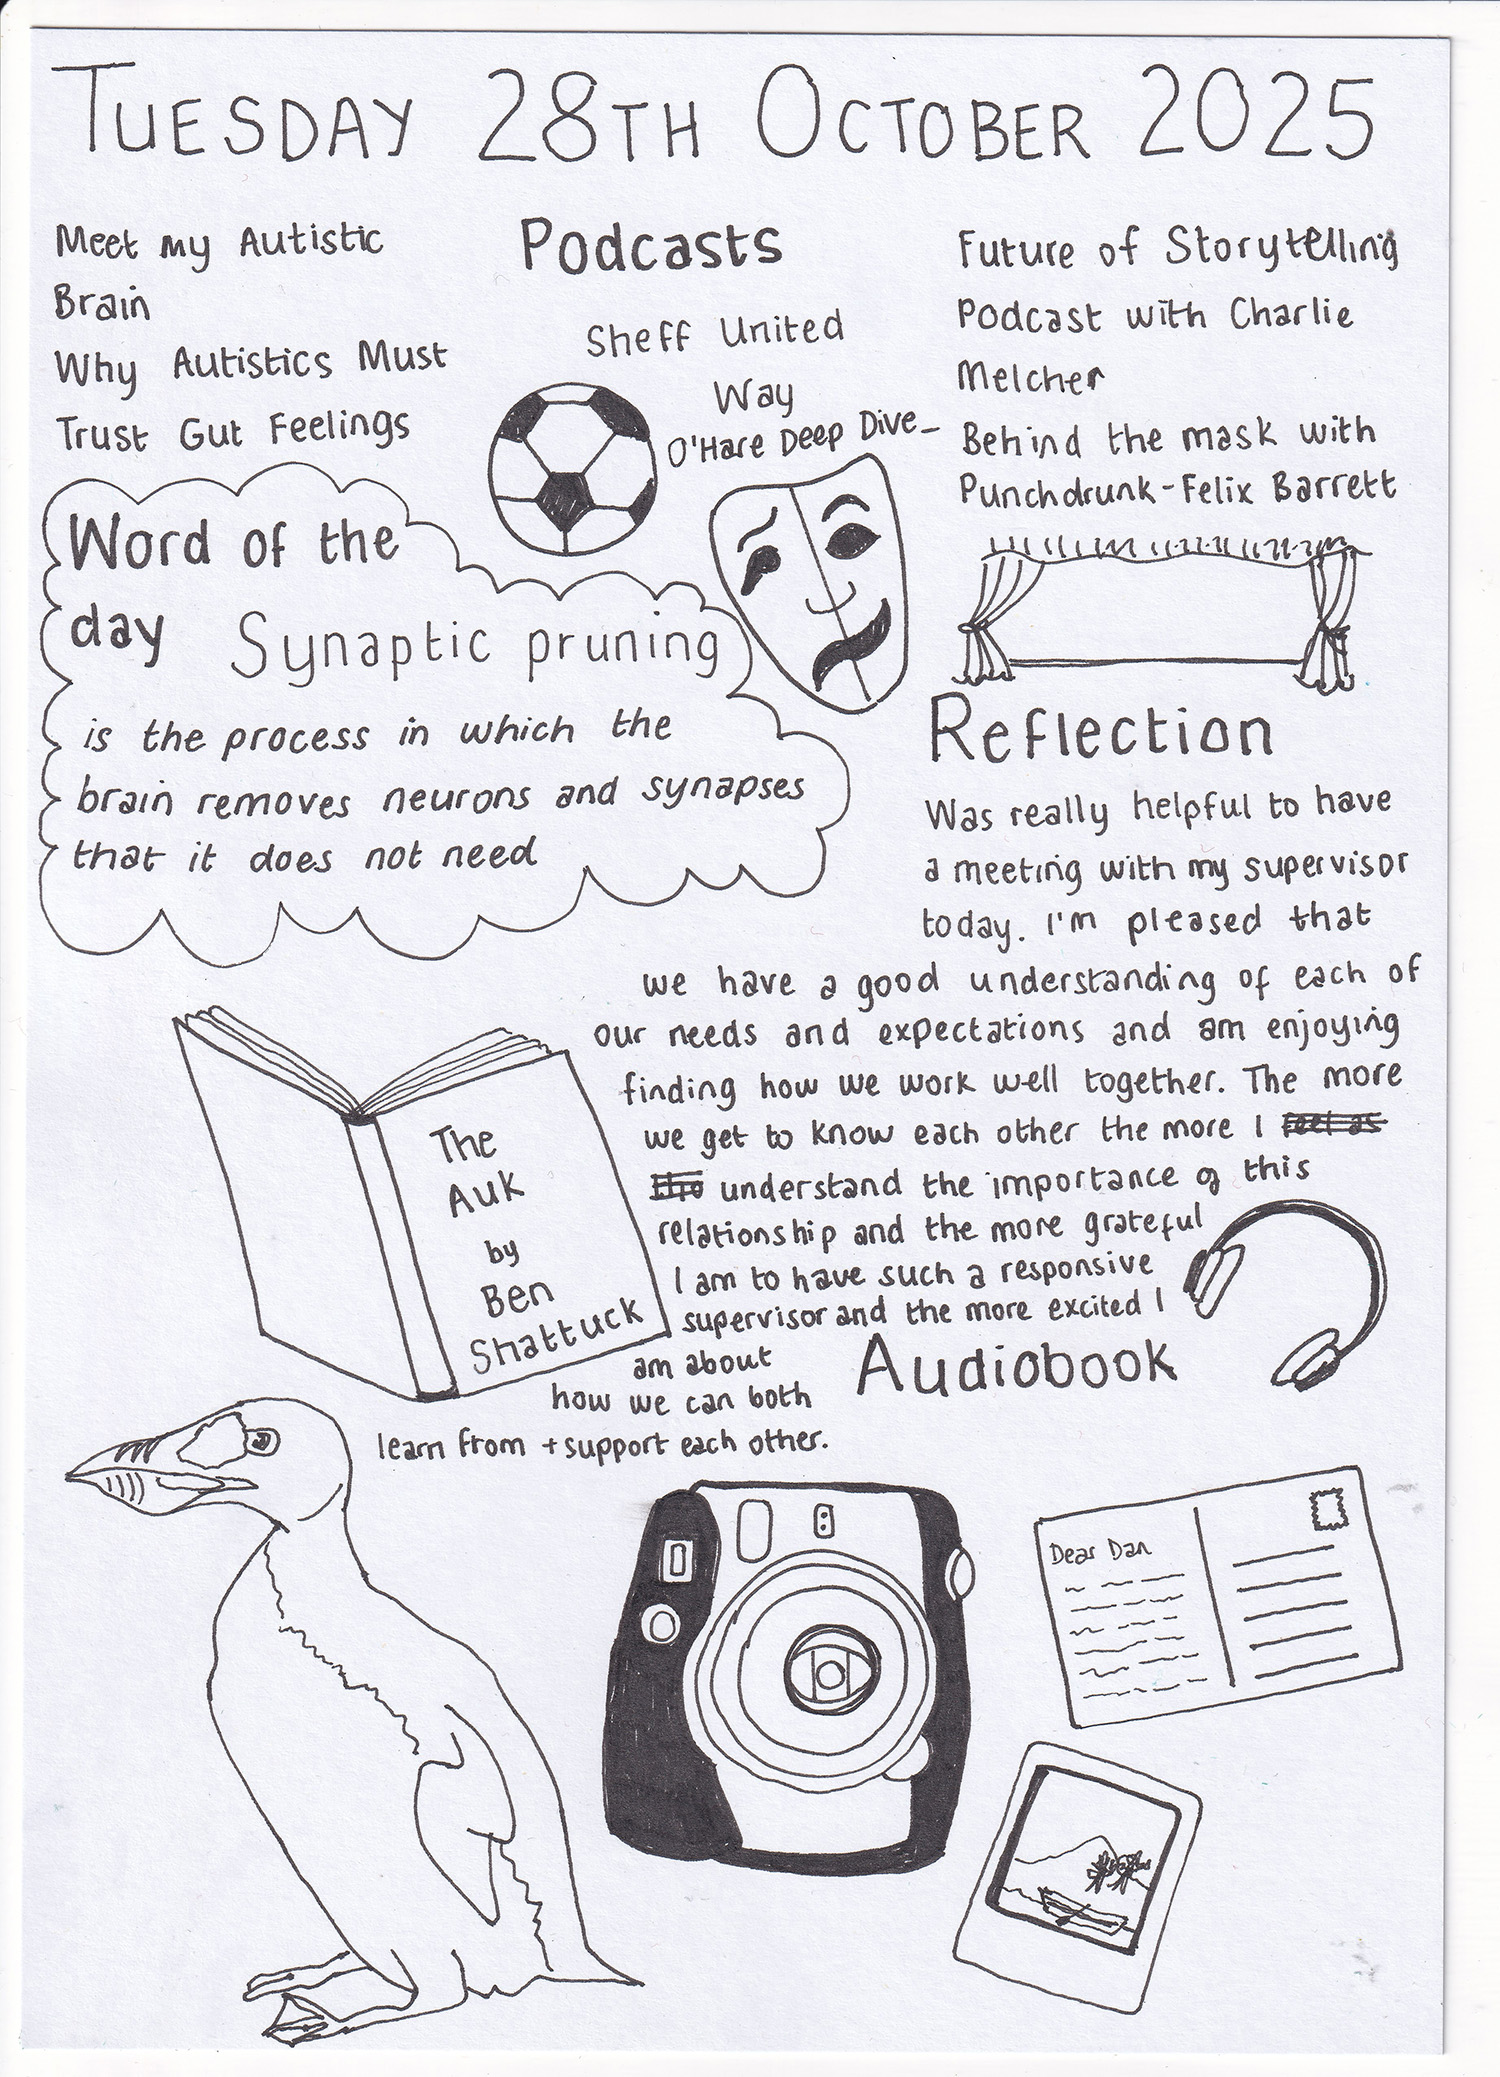 TUESDAY 28TH OCTOBER 2025
Meet my Autistic
Brain
Why Autistics Must
Trust Gut Feelings
Podcasts
Sheff United
Way
O'Hare Deep Dive
Future of Storytelling
Podcast with Charlie
Melcher
Behind the mask with
Punchdrunk - Felix Barrett
Word of the
day Synaptic pruning
is the process in which the
brain removes neurons and synapses
that it does not need
Reflection
Was really helpful to have
a meeting with my supervisor
today. I'm pleased that
we have a good understanding of each of
our needs and expectations and am enjoying
finding how we work well together. The more
we get to know each other the more I feel as
the understand the importance of this
relationship and the more grateful
I am to have such a responsive
supervisor and the more excited I
am about
how we can both
learn from + support each other.
The
Auk
by
Ben
Shattuck
Audiobook
Dear Dan